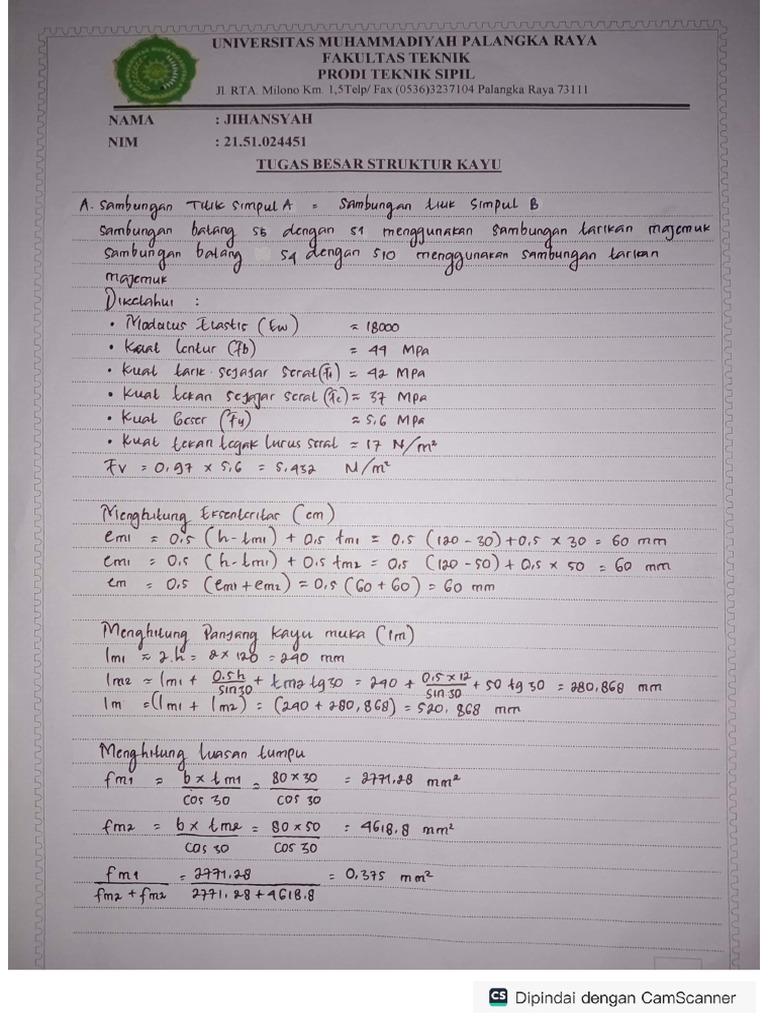 UNIVERSITAS MUHAMMADIYAH PALANGKA RAYA
FAKULTAS TEKNIK
PRODI TEKNIK SIPIL
Jl. RTA. Milono Km. 1,5Telp/ Fax (0536)3237104 Palangka Raya 73111
NAMA : JIHANSYAH
NIM : 21.51.024451
TUGAS BESAR STRUKTUR KAYU
A. Sambungan Titik Simpul A = Sambungan titik Simpul B
Sambungan batang S5 dengan S1 menggunakan Sambungan tarikan majemuk
Sambungan batang S4 dengan S10 menggunakan Sambungan tarikan
majemuk
Diketahui :
• Modulus Elastis (Ew) = 18000
• Kuat lentur (Fb) = 44 MPa
• Kuat tarik sejajar serat (Ft) = 42 MPa
• Kuat tekan sejajar serat (Fc) = 37 MPa
• Kuat Geser (Fv) = 5,6 MPa
• Kuat tekan tegak lurus serat = 17 N/m²
Fv = 0,97 x 5,6 = 5,432 N/m²
Menghitung Eksentersitas (em)
em1 = 0.5 (h-tm1) + 0.5 tm1 = 0.5 (120 - 30) + 0,5 x 30 = 60 mm
em1 = 0,5 (h-tm1) + 0,5 tm2 = 0,5 (120 - 50) + 0,5 x 50 = 60 mm
em = 0.5 (em1 + em2) = 0,5 (60 + 60) = 60 mm
Menghitung Panjang kayu muka (lm)
lm1 = 2.h = 2 x 120 = 240 mm
lm2 = lm1 + 0.5h/sin30 + tm2 tg30 = 240 + 0,5 x 12/sin 30 + 50 tg 30 = 280,868 mm
lm = (lm1 + lm2) = (240 + 280,868) = 520,868 mm
Menghitung luasan tumpu
fm1 = b x tm1/cos 30 = 80 x 30/cos 30 = 2771,28 mm²
fm2 = b x tm2/cos 30 = 80 x 50/cos 30 = 4618.8 mm²
fm1/fm2 + fm2 = 2771.28/2771,28 + 4618.8 = 0,375 mm²
CS Dipindai dengan CamScanner